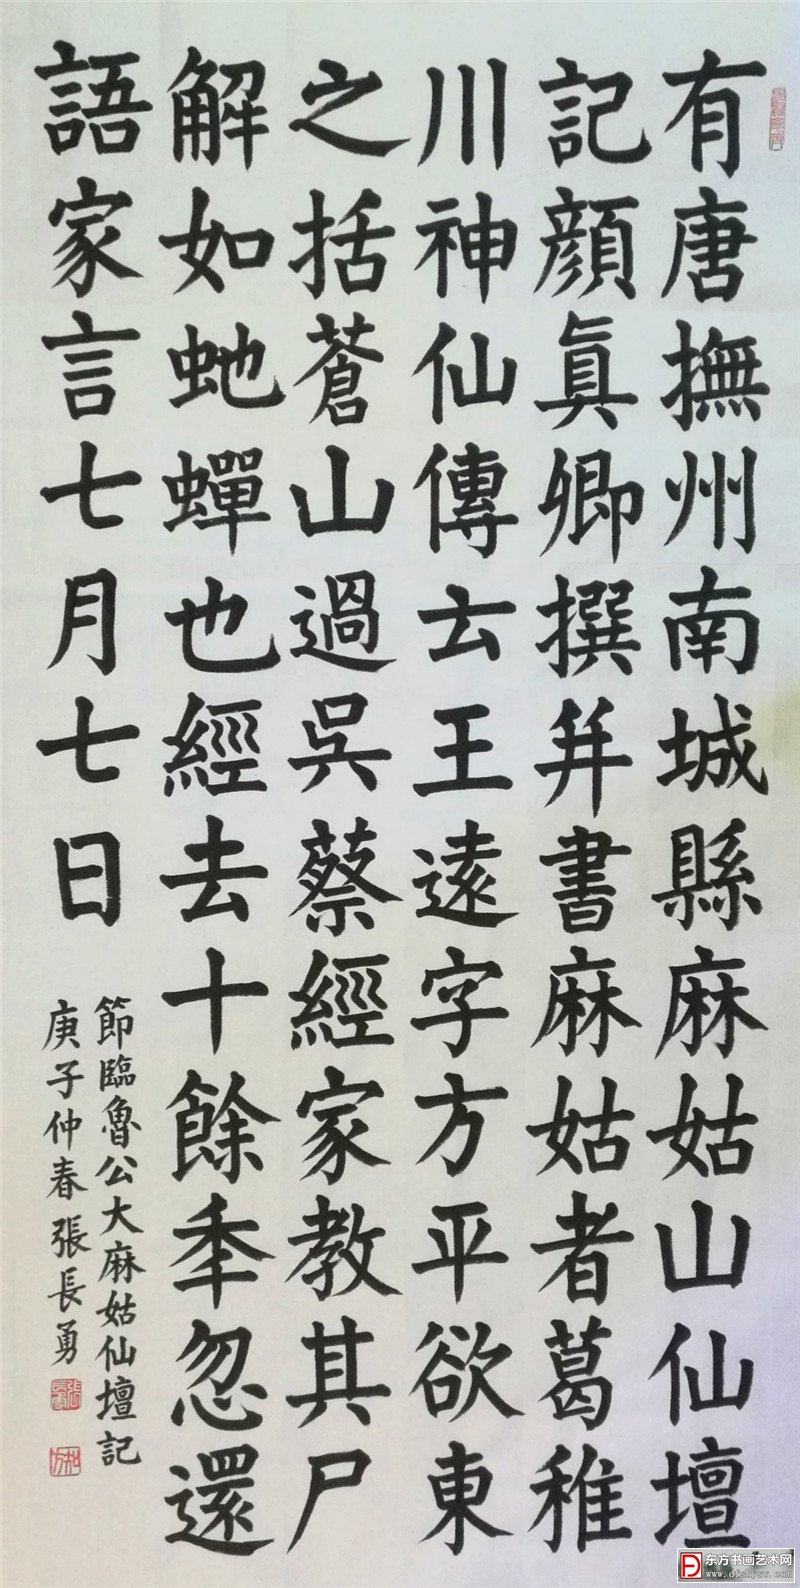 有唐撫州南城縣麻姑山仙壇
記顏眞卿撰并書麻姑者葛稚
川神仙傳云王遠字方平欲東
之括蒼山過吳蔡經家教其尸
解如虵蟬也經去十餘秊忽還
語家言七月七日
節臨魯公大麻姑仙壇記
庚子仲春張長勇
东方书画艺术网
www.dfshysw.com